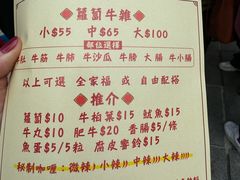 蘿蔔牛雜
小$55 中$65 大$100
部位選擇
牛肚 牛筋 牛肺 牛沙瓜 牛膀 大腸 牛小腸
以上可選 全家福 或 自由配搭
推介
蘿蔔$10 牛柏葉$15 魷魚$15
牛丸$10 肥牛$20 香腸$5/條
魚蛋$5/5粒 腐皮響鈴$15
秘制咖喱：微辣) 小辣)) 中辣))) 大辣))))